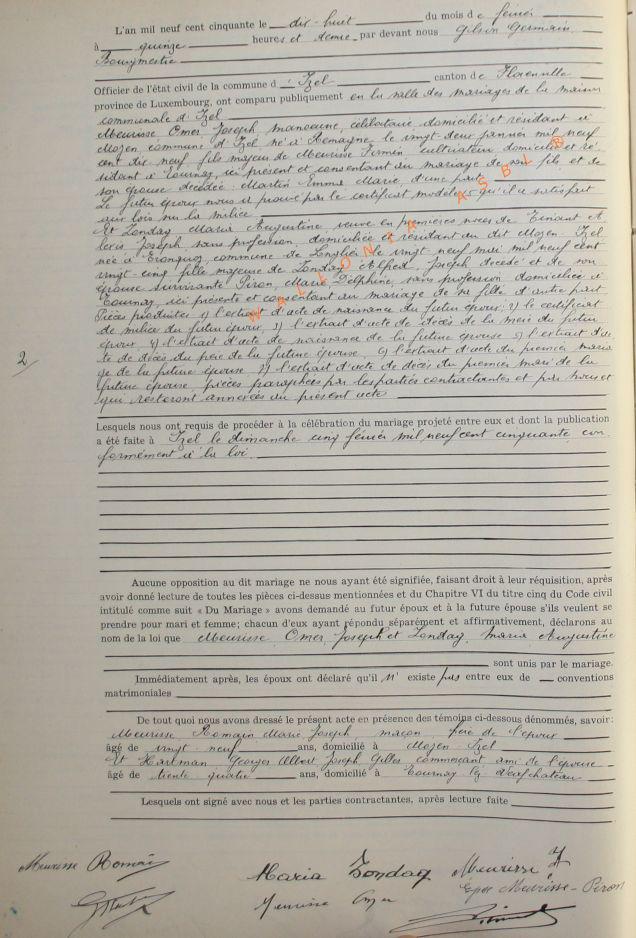 L'an mil neuf cent cinquante le dix-huit du mois de février
à quinze heures et demie, par devant nous Gilson Germain
Bourgmestre
Officier de l'état civil de la commune d'Izel canton de Florenville
province de Luxembourg, ont comparu publiquement en la salle des mariages de la maison
communale d'Izel
Meurisse Omer Joseph manoeuvre, célibataire domicilié et résidant à
Moyen commune d'Izel né à Remagne le vingt deux janvier mil neuf
cent dix neuf fils majeur de Meurisse Firmin cultivateur domicilié et ré
sidant à Tournay, ici présent et consentant au mariage de son fils, et de
son épouse décédée Martin Emma Marie, d'une part
Le futur époux nous a prouvé par le certificat modèle qu'il a satisfait
aux lois sur la milice
Et Zonday Maria Augustine veuve en premières noces de Tinant A
lexis Joseph, sans profession, domiciliée et résidant au dit Moyen-Izel
née à Tronquoy, commune de Longlier le vingt neuf mai mil neuf cent
vingt-cinq fille majeure de Zonday Alfred Joseph décédé et de son
épouse survivante Piron, Marie Delphine, sans profession domiciliée à
Tournay, ici présente et consentant au mariage de sa fille d'autre part
Pièces produites 1) l'extrait d'acte de naissance du futur époux, 2) le certificat
de milice du futur époux, 3) l'extrait d'acte de décès de la mère du futur
époux, 4) l'extrait d'acte de naissance de la future épouse 5) l'extrait d'ac
te de décès du père de la future épouse, 6) l'extrait d'acte du premier maria
ge de la future épouse 7) l'extrait d'acte de décès du premier mari de la
future épouse pièces paraphées par les parties contractantes et par nous et
qui resteront annexées au présent acte
2/
WALLONIA ASBL B
Lesquels nous ont requis de procéder à la célébration du mariage projeté entre eux et dont la publication
a été faite à Izel le dimanche cinq février mil neuf cent cinquante con
formément à la loi
Aucune opposition au dit mariage ne nous ayant été signifiée, faisant droit à leur réquisition, après
avoir donné lecture de toutes les pièces ci-dessus mentionnées et du Chapitre VI du titre cinq du Code civil
intitulé comme suit « Du Mariage » avons demandé au futur époux et à la future épouse s'ils veulent se
prendre pour mari et femme; chacun d'eux ayant répondu séparément et affirmativement, déclarons au
nom de la loi que Meurisse Omer Joseph et Zonday, Maria Augustine
sont unis par le mariage.
Immédiatement après, les époux ont déclaré qu'il n'existe pas entre eux de conventions
matrimoniales
De tout quoi nous avons dressé le présent acte en présence des témoins ci-dessous dénommés, savoir:
Meurisse Romain Marie Joseph, maçon, frère de l'époux
âgé de vingt-neuf ans, domicilié à Moyen-Izel
Et Hartman Georges Albert Joseph Gilles commerçant ami de l'épouse
âgé de trente quatre ans, domicilié à Tournay lez Neufchateau
Lesquels ont signé avec nous et les parties contractantes, après lecture faite
Meurisse Romain Maria Zonday Meurisse F
Epse Meurisse-Piron
Meurisse Omer